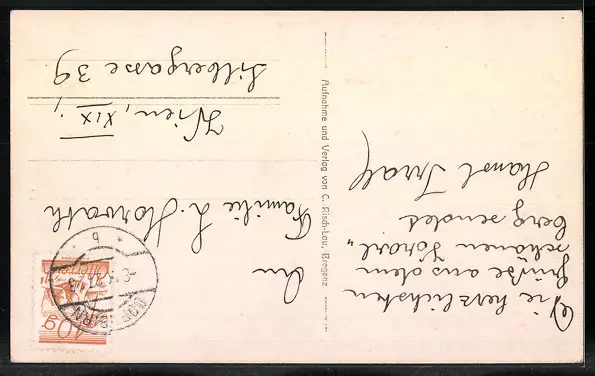 Die herzlichsten
Grüße aus dem
schönen Vorarl„
berg sendet
Hansl
Aufnahme und Verlag von C. Risch-Lau, Bregenz
An
Familie L. Horwath
Wien, XIX.,
Silbergasse 39.
DORNBIRN
* b *